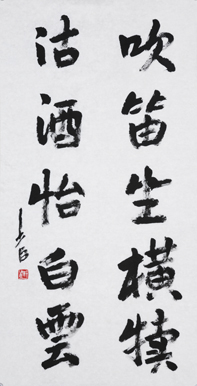 吹笛坐橫犢
沽酒怡白雲